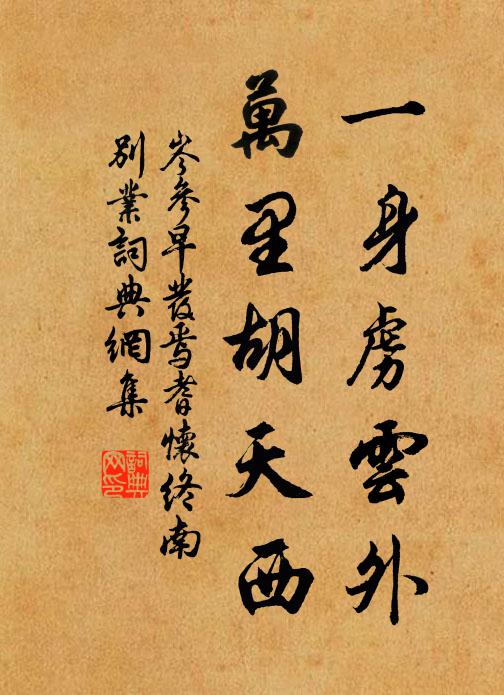 一身虜雲外
萬里胡天西
岑參早發焉耆懷終南
別業詞典網集
詞典網印